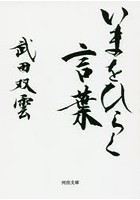 いまをひらく
言葉
武田双雲
河出文庫